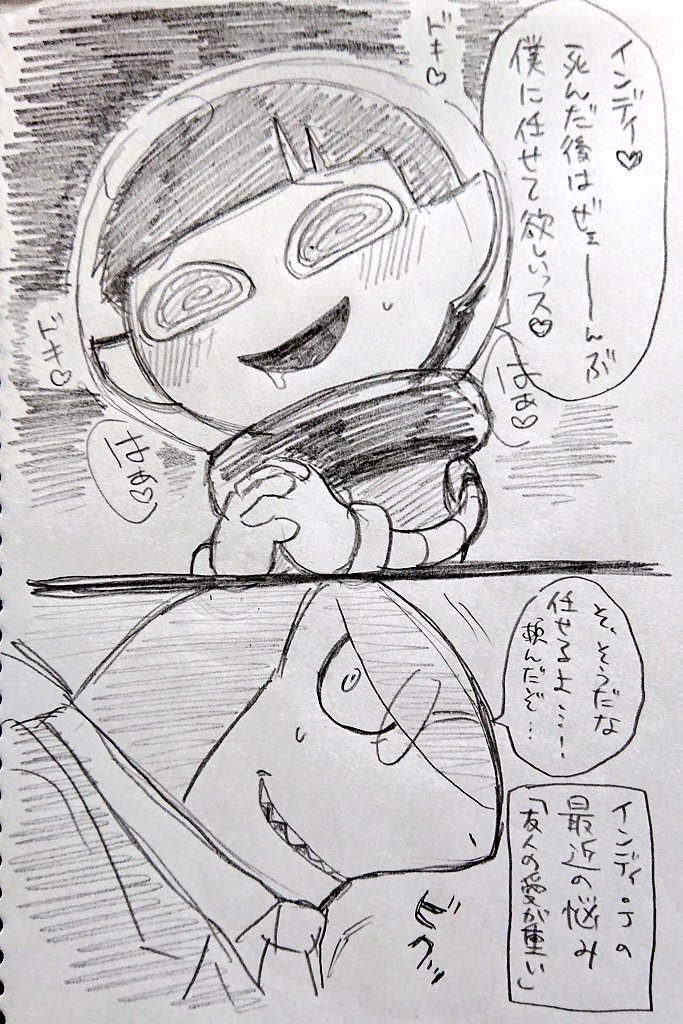 インディ♡
死んだ後はぜェーーんぶ
僕に任せて欲しいっス♡
ドキ♡
ドキ♡
はぁ♡
はぁ♡
そ、そうだな
任せるよ…!
頼んだぞ…
ビクッ
インディ.Jの
最近の悩み
「友人の愛が重い」